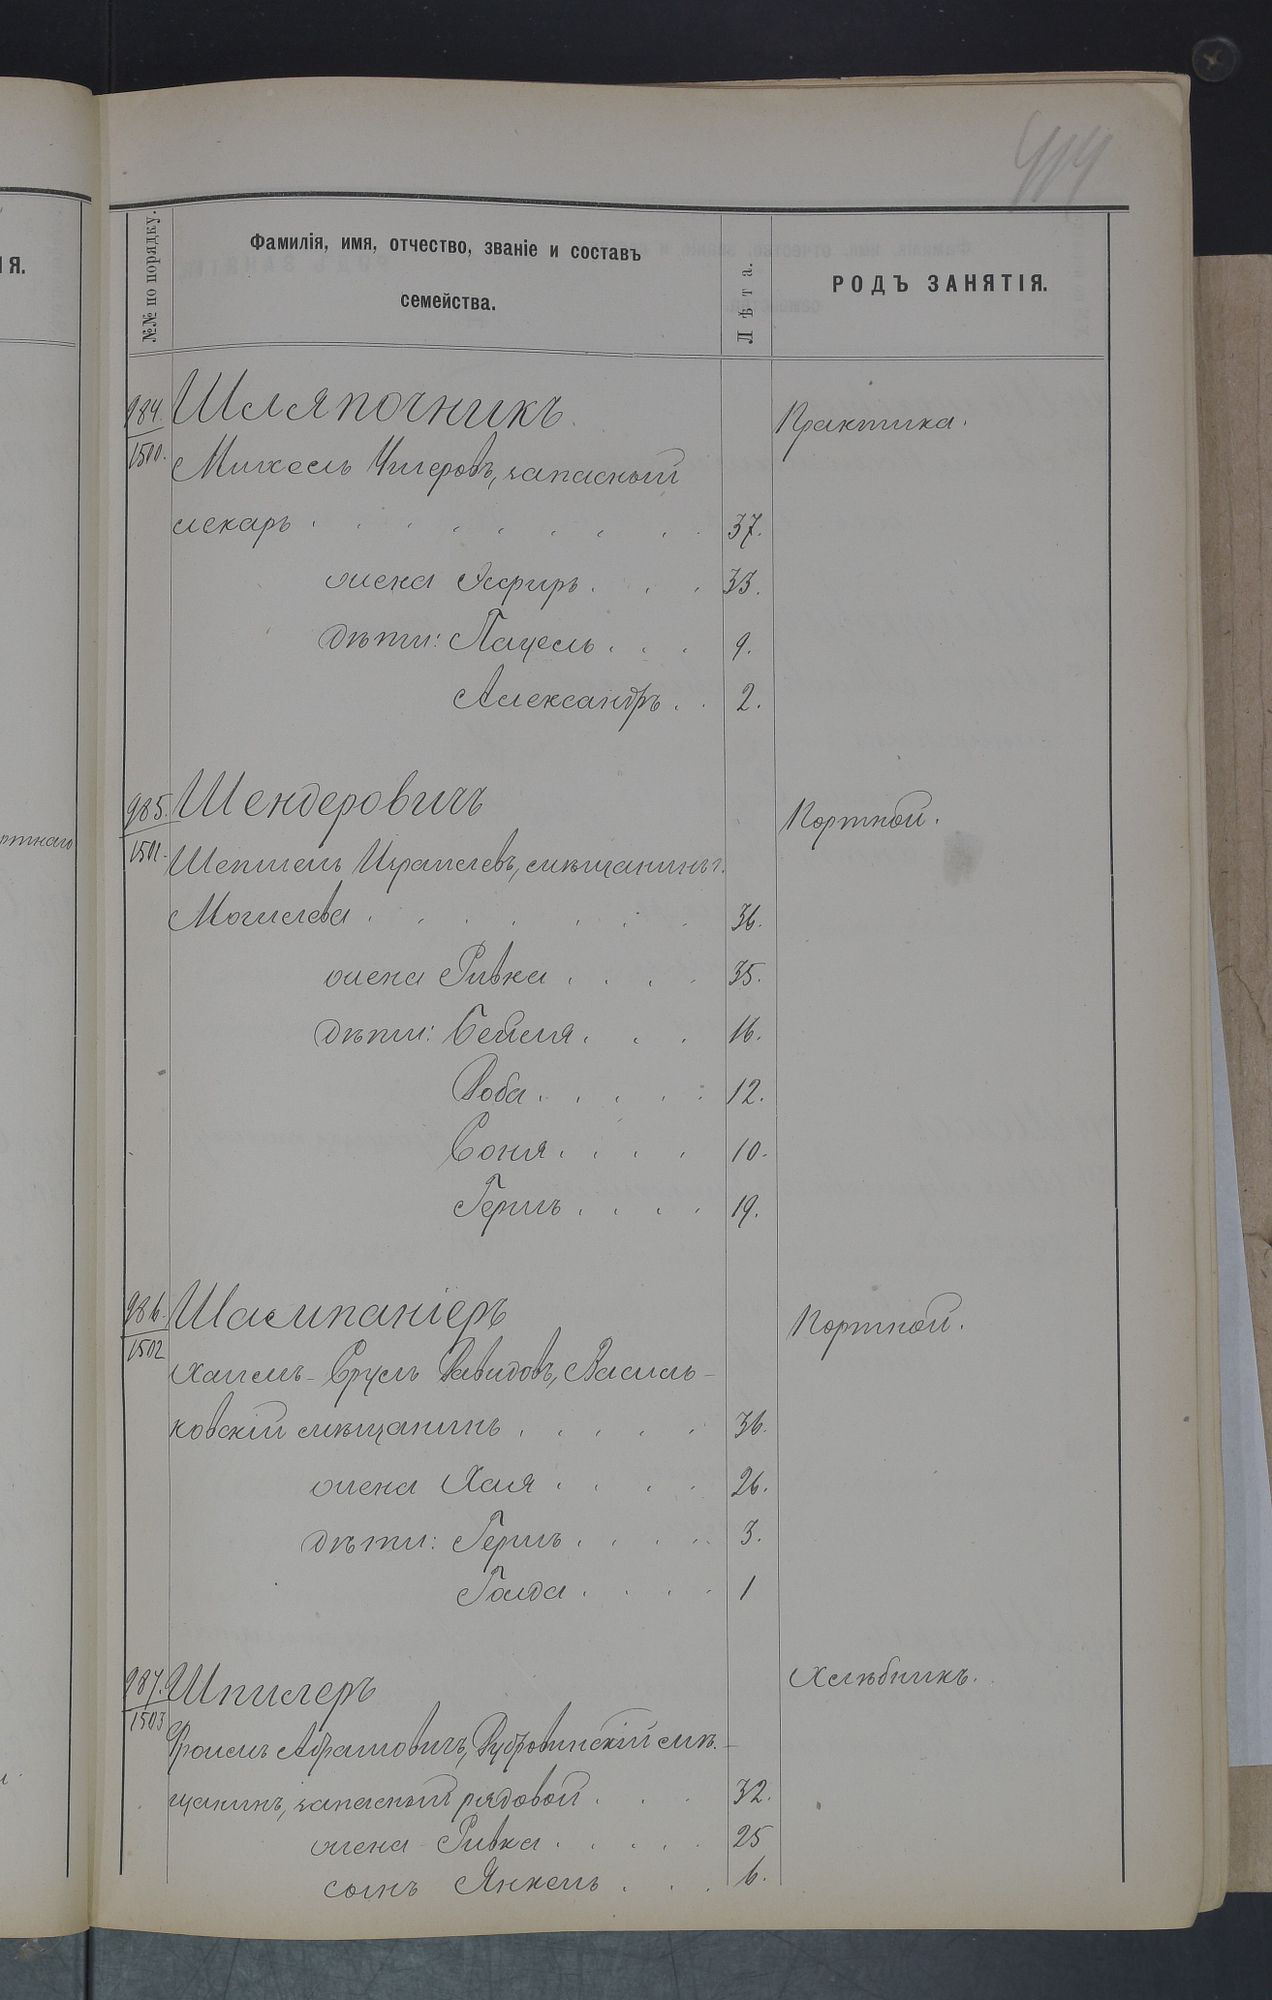 414
№№ по порядку.
Фамилія, имя, отчество, званіе и составъ
семейства.
Лѣта.
РОДЪ ЗАНЯТІЯ.
ІЯ.
984.
1500.
Шляпочникъ
Практика.
запасный
лекарь . . . . . . . . . 37.
жена Эсфирь . . . 33.
дѣти: . . . 9.
Александръ . . 2.
985.
1501.
Шендеровичъ
Портной.
ртнаго
Израилевъ, мѣщанинъ г.
Могилева . . . . . . . 36.
жена Ривка . . . . 35.
дѣти: Бейля . . . 16.
Доба . . . . . 12.
Соня . . . . 10.
Гершъ . . . . 19.
986.
1502
Шампаніеръ
Портной.
Хаимъ-Сруль Давидовъ, Василь-
ковскій мѣщанинъ . . . . . 36.
жена Хая . . . . 26.
дѣти: Гершъ . . . . 3.
Голда . . . . 1
987.
1503
Шпилеръ
Хлѣбникъ.
Фроимъ Абрамовичъ, Дубровинскій мѣ-
щанинъ, запасный рядовой . . . 32.
жена Ривка . . . . . 25
сынъ Янкель . . . 6.